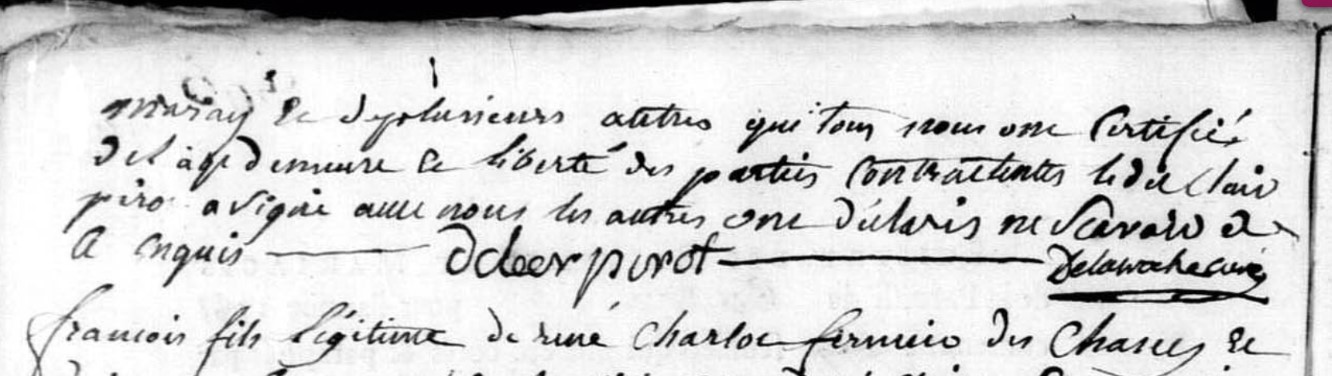 maray et de plusieurs autres qui tous nous ont certifié
de l'age demeure et liberté des parties contractentes le dit clair
piro a signé avec nous les autres ont déclaris ne scavoir de
ce enquis dcleer pirot Delaroche curé
francois fils légitime de rené charlot fermier des Chases et